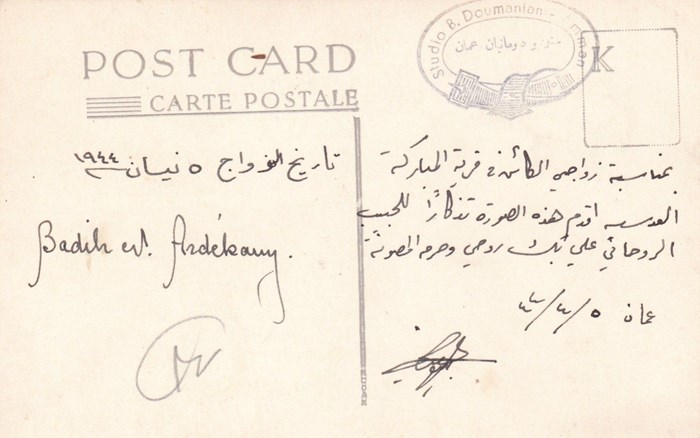 POST CARD
CARTE POSTALE
Studio B. Doumanian - Amman
ستوديو دومانيان عمان
K
تاريخ الزواج ٥ نيسان ١٩٤٤
Badih
بمناسبة زواجي الكائن في قرية المباركة
العدسيه اقدم هذه الصورة تذكارًا للحبيب
الروحاني علي بك روحي وحرمه المصونة
عمان ٥/٤/٤٤